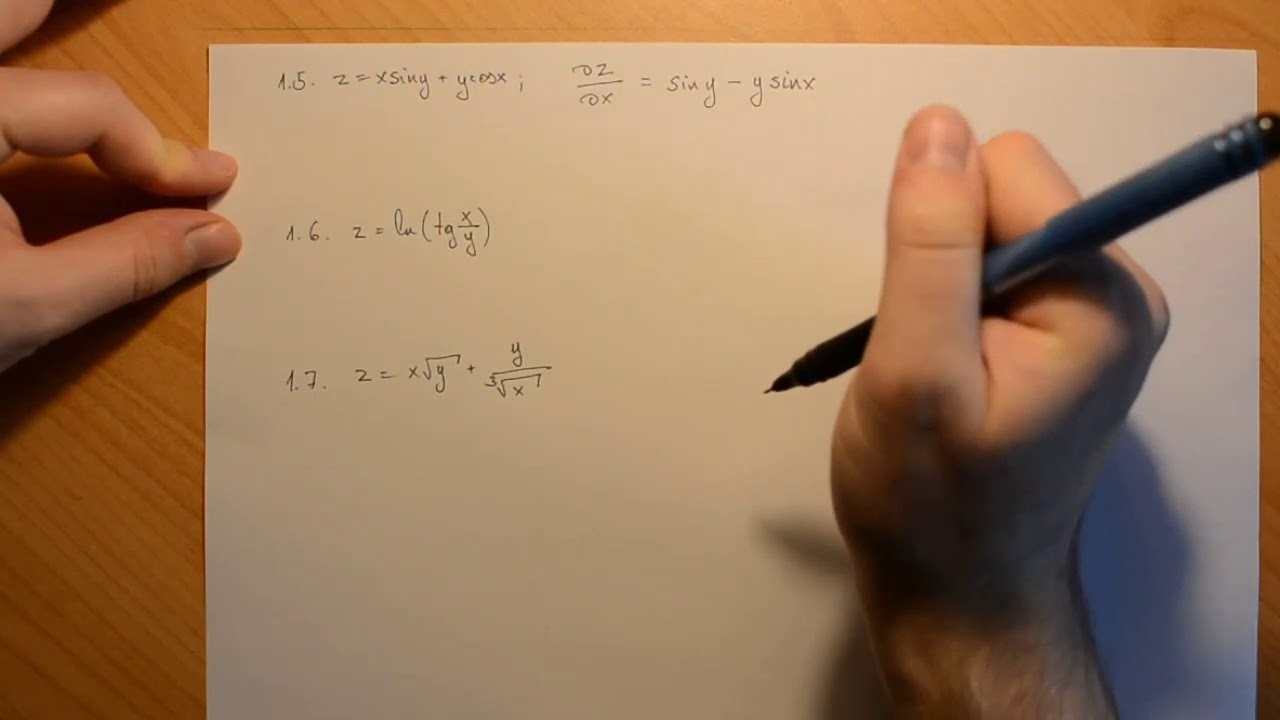 1.5. z = x sin y + y cos x ; ∂z/∂x = sin y − y sin x
1.6. z = ln(tg x/y)
1.7. z = x√y + y/∛x